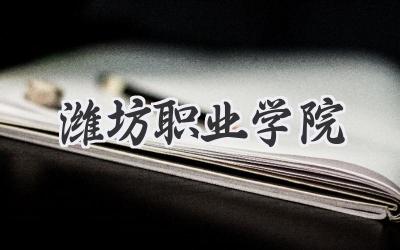 潍坊职业学院